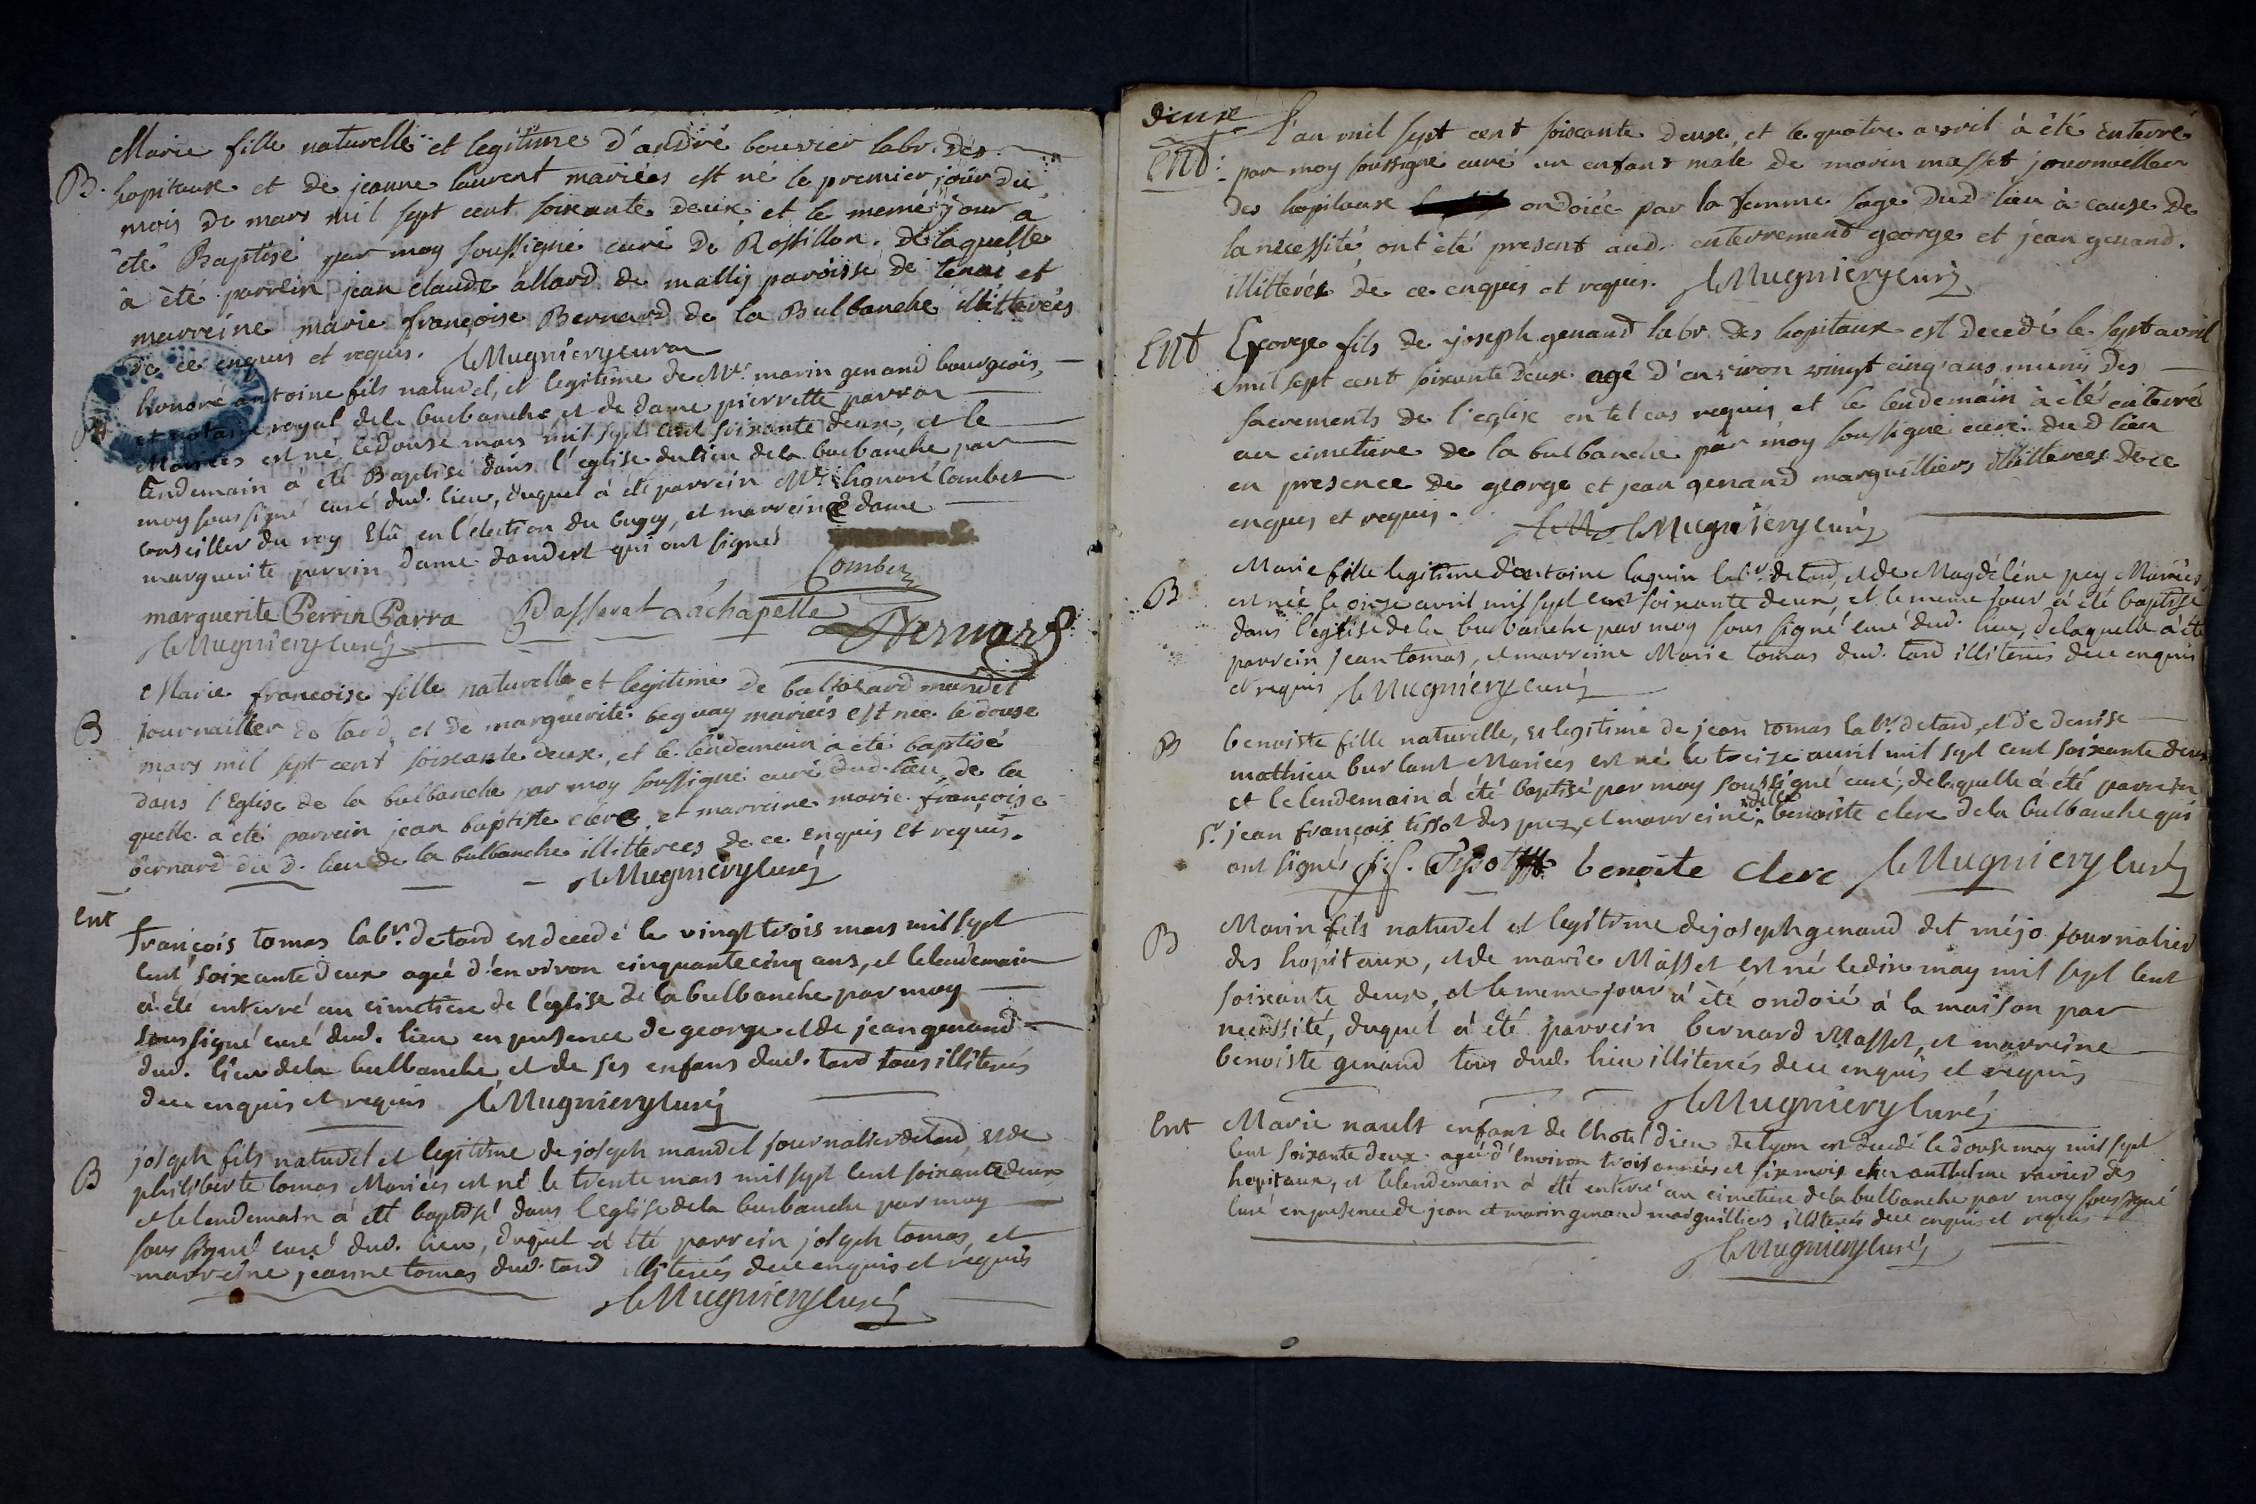 Marie fille naturelle et legitime d'andré bouvier labr. des
B. hopitaux et de jeanne laurent mariées est né le premier jour du
mois de mars mil sept cent soixante deux et le meme jour à
été Baptisé par moy soussigné curé de Rossillon. de laquelle
à été parrein jean claude allard de mally paroisse de tenai et
marreine marie françoise Bernard de la Bulbanche illitterées
de ce enquis et requis. /. Mugniery cura
honoré antoine fils naturel, et legitime de Me. marin genand bourgeois,
et notaire royal dela burbanche et de dame pierrette parra
Mariées est né le douse mars mil sept cent soixante deux, et le
lendemain à été Baptisé dans l'eglise du lieu dela burbanche par
moy sous signé curé dud. lieu, duquel à été parrein Mr. honoré Combet
conseiller du roy Elû en l'élection du bugey, et marreine dame
marguerite perrin dame dandert qui ont signés
Combet
marguerite Perrin Parra Passerat Lachapelle
Bernard
/. Mugniery curé
Marie françoise fille naturelle et legitime de baltasard mandet
B journailler de tard, et de marguerite beguay mariées est née le douse
mars mil sept cent soixante deux, et le lendemain à été baptisé
dans l'Eglise de la bulbanche par moy soussigné curé dud. lieu, de la
quelle a été parrein jean baptiste clerc, et marreine marie françoise
bernard du d. lieu de la bulbanche illitterees de ce enquis et requis.
/. Mugniery curé
Ent
françois tomas labr. de tard est decedé le vingt trois mars mil sept
cent soixante deux agé d'environ cinquante cinq ans, et le lendemain
à été enterré au cimetiere de l'église de la bulbanche par moy
soussigné curé dud. lieu en presence de george et de jean genand
dud. lieu dela bulbanche, et de ses enfans dud. tard tous illiterés
dece enquis et requis /. Mugniery curé
joseph fils naturel et legitime de joseph mandet journalier de tard, et de
B philiberte tomas Mariés est né le trente mars mil sept cent soixante deux
et le lendemain à été baptisé dans l'eglise dela burbanche par moy
sous signé curé dud. lieu, duquel à été parrein joseph tomas, et
marreine jeanne tomas dud. tard illiterés dece enquis et requis
/. Mugniery curé
deuxe
L'an mil sept cent soixante deux, et le quatre avril à été enterré
Ent: par moy soussigné curé un enfant male de marin masset journailler
des hopitaux ondoiée par la femme sage dud lieu à cause de
la necessité, ont été present aud. enterrement george et jean genand.
illitterés de ce enquis et requis. /. Mugniery curé
Ent George fils de joseph genand labr. des hopitaux est decedé le sept avril
mil sept cent soixante deux agé d'environ vingt cinq ans, munis des
sacrements de l'eglise en tel cas requis et le lendemain à été enterré
au cimetiere de la bulbanche par moy soussigné curé dud lieu
en presence de george et jean genand marguilliers illitterees de ce
enquis et requis. /. Mugniery curé
Marie fille legitime d'antoine laguin labr. de tard, et de Magdeléne pey Mariées
B est née le onse avril mil sept cent soixante deux, et le meme jour à été baptisé
dans l'eglise de la burbanche par moy sous signé curé dud. lieu, delaquelle à été
parrein jean tomas, et marreine Marie tomas dud. tard illiterés dece enquis
et requis /. Mugniery curé
B benoiste fille naturelle, et legitime de jean tomas labr. de tard, et de denise
mathieu burlant Mariées est né le treize avril mil sept cent soixante deux
et le lendemain à été baptisé par moy soussigné curé, delaquelle à été parrein
Sr. jean françois tissot des prez, et marreine delle. benoiste clerc dela bulbanche qui
ont signés j. f. Tissot benoite clerc /. Mugniery curé
B Marin fils naturel et legitime de joseph genand det méjo journalier
des hopitaux, et de marie Masset est né le dix may mil sept cent
soixante deux, et le meme jour à été ondoié à la maison par
necessité, duquel à été parrein bernard Masset, et marreine
benoiste genand tous dud. lieu illiterés dece enquis et requis
/. Mugniery curé
Ent Marie nault enfant de l'hotel dieu de lyon est decedé le douse may mil sept
cent soixante deux agée d'environ trois années et six mois chez anthelme ravier des
hopitaux, et le lendemain à été enterré au cimetiere dela bulbanche par moy soussigné
curé en presence de jean et marin genand marguilliers illiterés dece enquis et requis
/. Mugniery curé